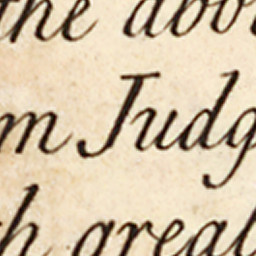 the abov
m Judg
h great